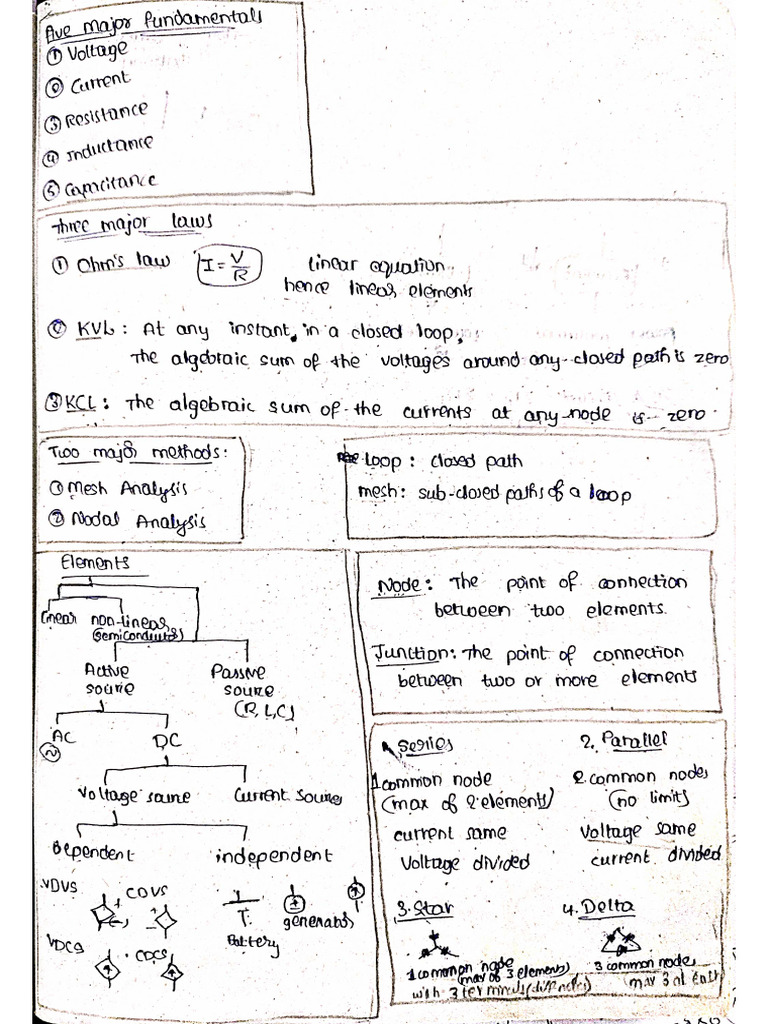 five major fundamentals
① Voltage
② Current
③ Resistance
④ Inductance
⑤ Capacitance
three major laws
① Ohm's law I = V/R linear equation
hence linear elements
② KVL : At any instant, in a closed loop,
The algebraic sum of the voltages around any closed path is zero
③ KCL : The algebraic sum of the currents at any node is zero.
Two major methods:
① Mesh Analysis
② Nodal Analysis
Loop : closed path
mesh: sub-closed paths of a loop
Elements
linear non-linear
(semiconductors)
Active source
Passive source
(R, L, C)
AC DC
Voltage source Current source
Dependent independent
VDVS CDVS
Battery generator
VDCS CDCS
Node: The point of connection
between two elements.
Junction: The point of connection
between two or more elements
1. Series
1 common node
(max of 2 elements)
current same
Voltage divided
2. Parallel
2 common nodes
(no limits)
Voltage same
current divided
3. Star
1 common node
(max of 3 elements)
with 3 terminals
4. Delta
3 common nodes
max 3 at each